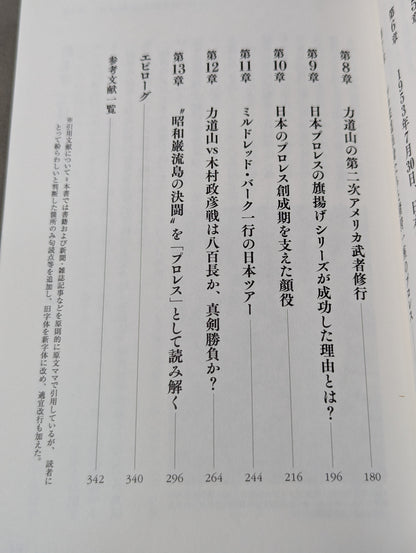 第6章
1953年
月30日、日
第8章 力道山の第二次アメリカ武者修行 180
第9章 日本プロレスの旗揚げシリーズが成功した理由とは? 196
第10章 日本のプロレス創成期を支えた顔役 216
第11章 ミルドレッド・バーク一行の日本ツアー 244
第12章 力道山vs木村政彦戦は八百長か、真剣勝負か? 264
第13章 〝昭和巌流島の決闘〟を「プロレス」として読み解く 296
エピローグ 340
参考文献一覧 342
※引用文献について=本書では書籍および新聞・雑誌記事などを原則的に原文ママで引用しているが、読者に
とって紛らわしいと判断した箇所のみ句読点等を追加し、旧字体を新字体に改め、適宜改行も加えた。